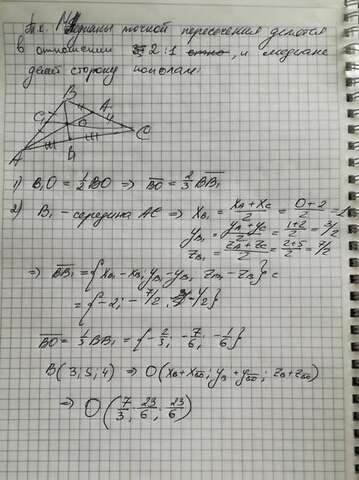 Т.к. Медианы точкой пересечения делятся
в отношении 2:1 , и медиана
делит сторону пополам:
B
C₁ A₁
O
A B₁ C
1) B₁O = 1/2 BO ⇒ BO = 2/3 BB₁
2) B₁ - середина AC ⇒ x_B₁ = (x_A + x_C)/2 = (0+2)/2 = 1
y_B₁ = (y_A + y_C)/2 = (1+2)/2 = 3/2
z_B₁ = (z_A + z_C)/2 = (2+5)/2 = 7/2
⇒ BB₁ = {x_B₁ - x_B; y_B₁ - y_B; z_B₁ - z_B} =
= {-2; -7/2; -1/2}
BO = 1/3 BB₁ = {-2/3; -7/6; -1/6}
B(3,5,4) ⇒ O(x_B + x_BO; y_B + y_BO; z_B + z_BO)
⇒ O(7/3; 23/6; 23/6)